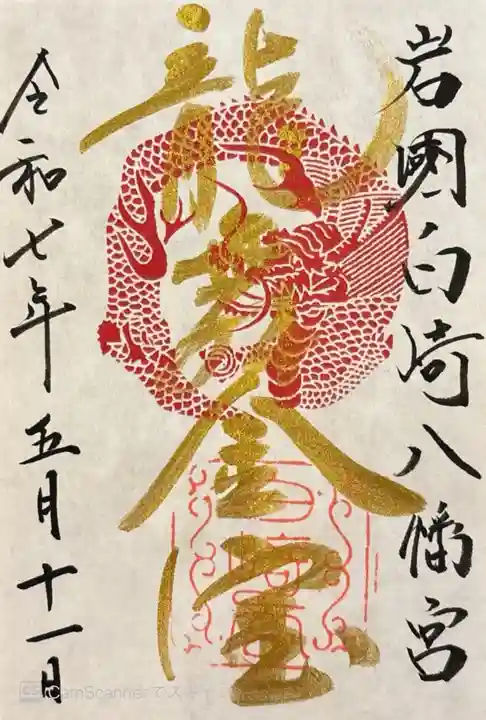 岩國白崎八幡宮
龍
金
令和七年五月十一日
CS CamScannerでス